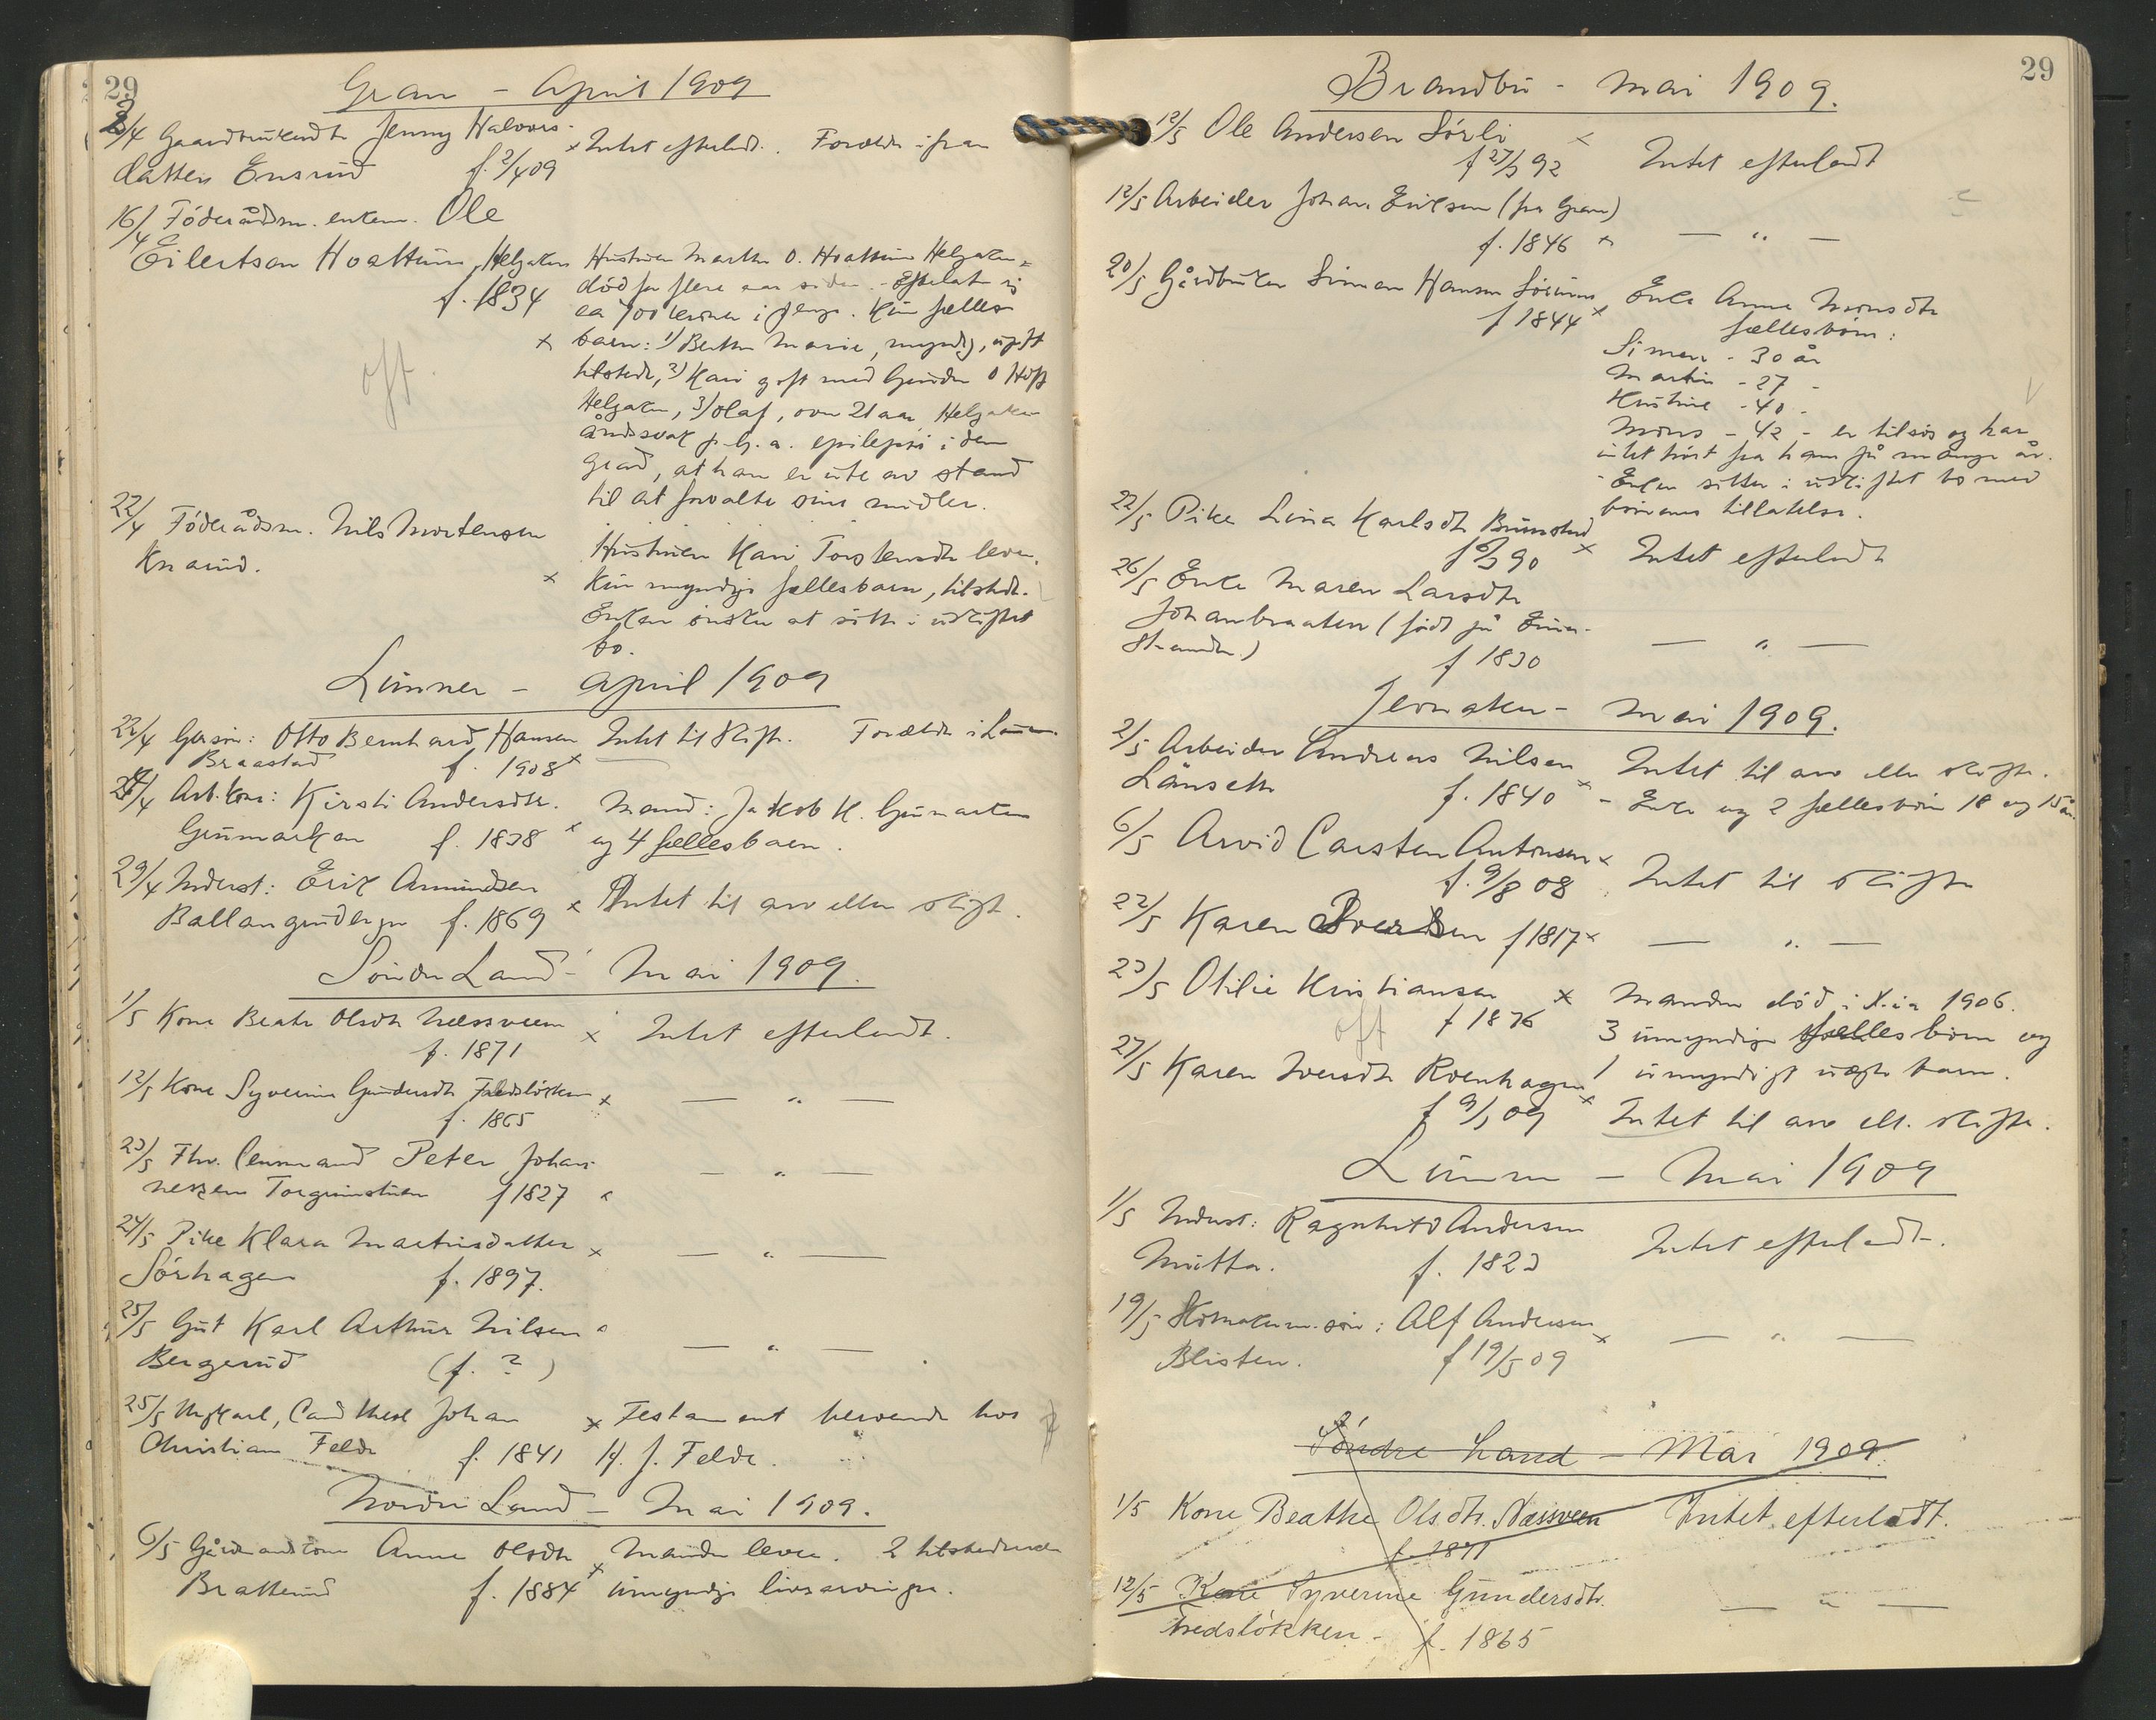 29
Gran - April 1909
3/4 Gaardbrukerdtr Jenny Halvors-
datter Ensrud f. 2/4 09
x Intet efterladt. Forældre i Gran
16/4 Föderådsm. enkem. Ole
Eilertsen Hvattum, Helgaker
f. 1834
Hustruen Marthe O. Hvattum Helgaker
död for flere aar siden. - Efterlater sig
ca 700 kroner i penge. Kun fælles-
x barn: 1) Berthe Marie, myndig, ugift
tilstede, 2) Kari gift med Gudm O Hoff
Helgaker, 3) Olaf, over 21 aar, Helgaker
åndssvak p. g. a. epilepsi i den
grad, at han er ute av stand
til at forvalte sine midler.
off.
22/4 Föderådsm. Nils Mortensen
Knarud.
Hustruen Kari Torstensdtr lever.
x Kun myndige fællesbarn, tilstede.
Enken önsker at sitte i uskiftet
bo.
Lunner - april 1909
22/4 Grs.sön: Otto Bernhard Hansen
Braastad f. 1908 x
Intet til Skifte. Forældre i Lunner.
24/4 Arb. kone: Kirsti Andersdtr.
Grinmarken f. 1838 x
Mand: Jakob K. Grinmarken
og 4 fællesbarn.
29/4 Inderst: Erik Amundsen
Ballangrudeie f. 1869 x
Intet til arv eller skifte.
Söndre Land - Mai 1909.
1/5 Kone Beathe Olsdtr Næssveen
f. 1871
x Intet efterladt.
12/5 Kone Syverine Gundersdtr Fredslökken x
f. 1865
— " —
23/5 Fhv. Lensmand Peter Johan-
nessen Torgunstuen f 1827 x
— " —
24/5 Pike Klara Martinsdatter x
Sörhagen f. 1897.
— " —
25/5 Gut Karl Arthur Nilsen x
Bergerud (f. ?)
— " —
25/5 Ungkarl, Cand theol Johan
Christian Felde f. 1841
x Testament beroende hos
H. J. Felde.
Nordre Land - Mai 1909.
6/5 Gårdmandskone Anne Olsdtr
Bratterud f. 1884 x
Manden lever. 2 tilstedeværende
umyndige livsarvinger.
29
Brandbu - Mai 1909.
12/5 Ole Andersen Sörli x
f 27/3 92
Intet efterladt
12/5 Arbeider Johan Eriksen (fra Gran)
f. 1846 x
— " —
20/5 Gårdbruker Simen Hansen Sörum,
f 1844 x
Enke Anne Monsdtr
fællesbörn:
Simen - 30 år
Martin - 27 -
Kristine - 40 -
Mons - 42 - er tilsös og har
intet hört fra ham på mange år.
- Enken sitter i uskiftet bo med
börnenes tillatelse.
22/5 Pike Lina Karlsdtr Brunstad
90 x
Intet efterladt
26/5 Enke Maren Larsdtr
Johanbraaten (född på Eina-
stranden)
f 1830
— " —
Jevnaker - Mai 1909.
2/5 Arbeider Andreas Nilsen
Länseth f. 1840 x
Intet til arv eller skifte.
- Enke og 2 fællesbörn 18 og 15 år.
6/5 Arvid Carsten Antonsen x
f. 9/8 08
Intet til skifte
22/5 Karen Iversen f 1817 x
— " —
23/5 Otilie Kristiansen x
f 1876
off
Manden död i X.ia 1906.
3 umyndige fællesbörn og
1 umyndigt uægte barn.
27/5 Karen Iversdtr Roenhagen
f 9/5 09 x
Intet til arv ell. skifte.
Lunner - Mai 1909
1/5 Inderst: Ragnhild Andersen
Mutta. f. 1823
Intet efterladt.
19/5 Skomakerm. sön: Alf Andersen x
Blisten. f 19/5 09
— " —
Söndre Land - Mai 1909.
1/5 Kone Beathe Olsdtr. Næssveen
f. 1871
Intet efterladt.
12/5 Kone Syverine Gundersdtr.
Fredslökken - f. 1865
— " —